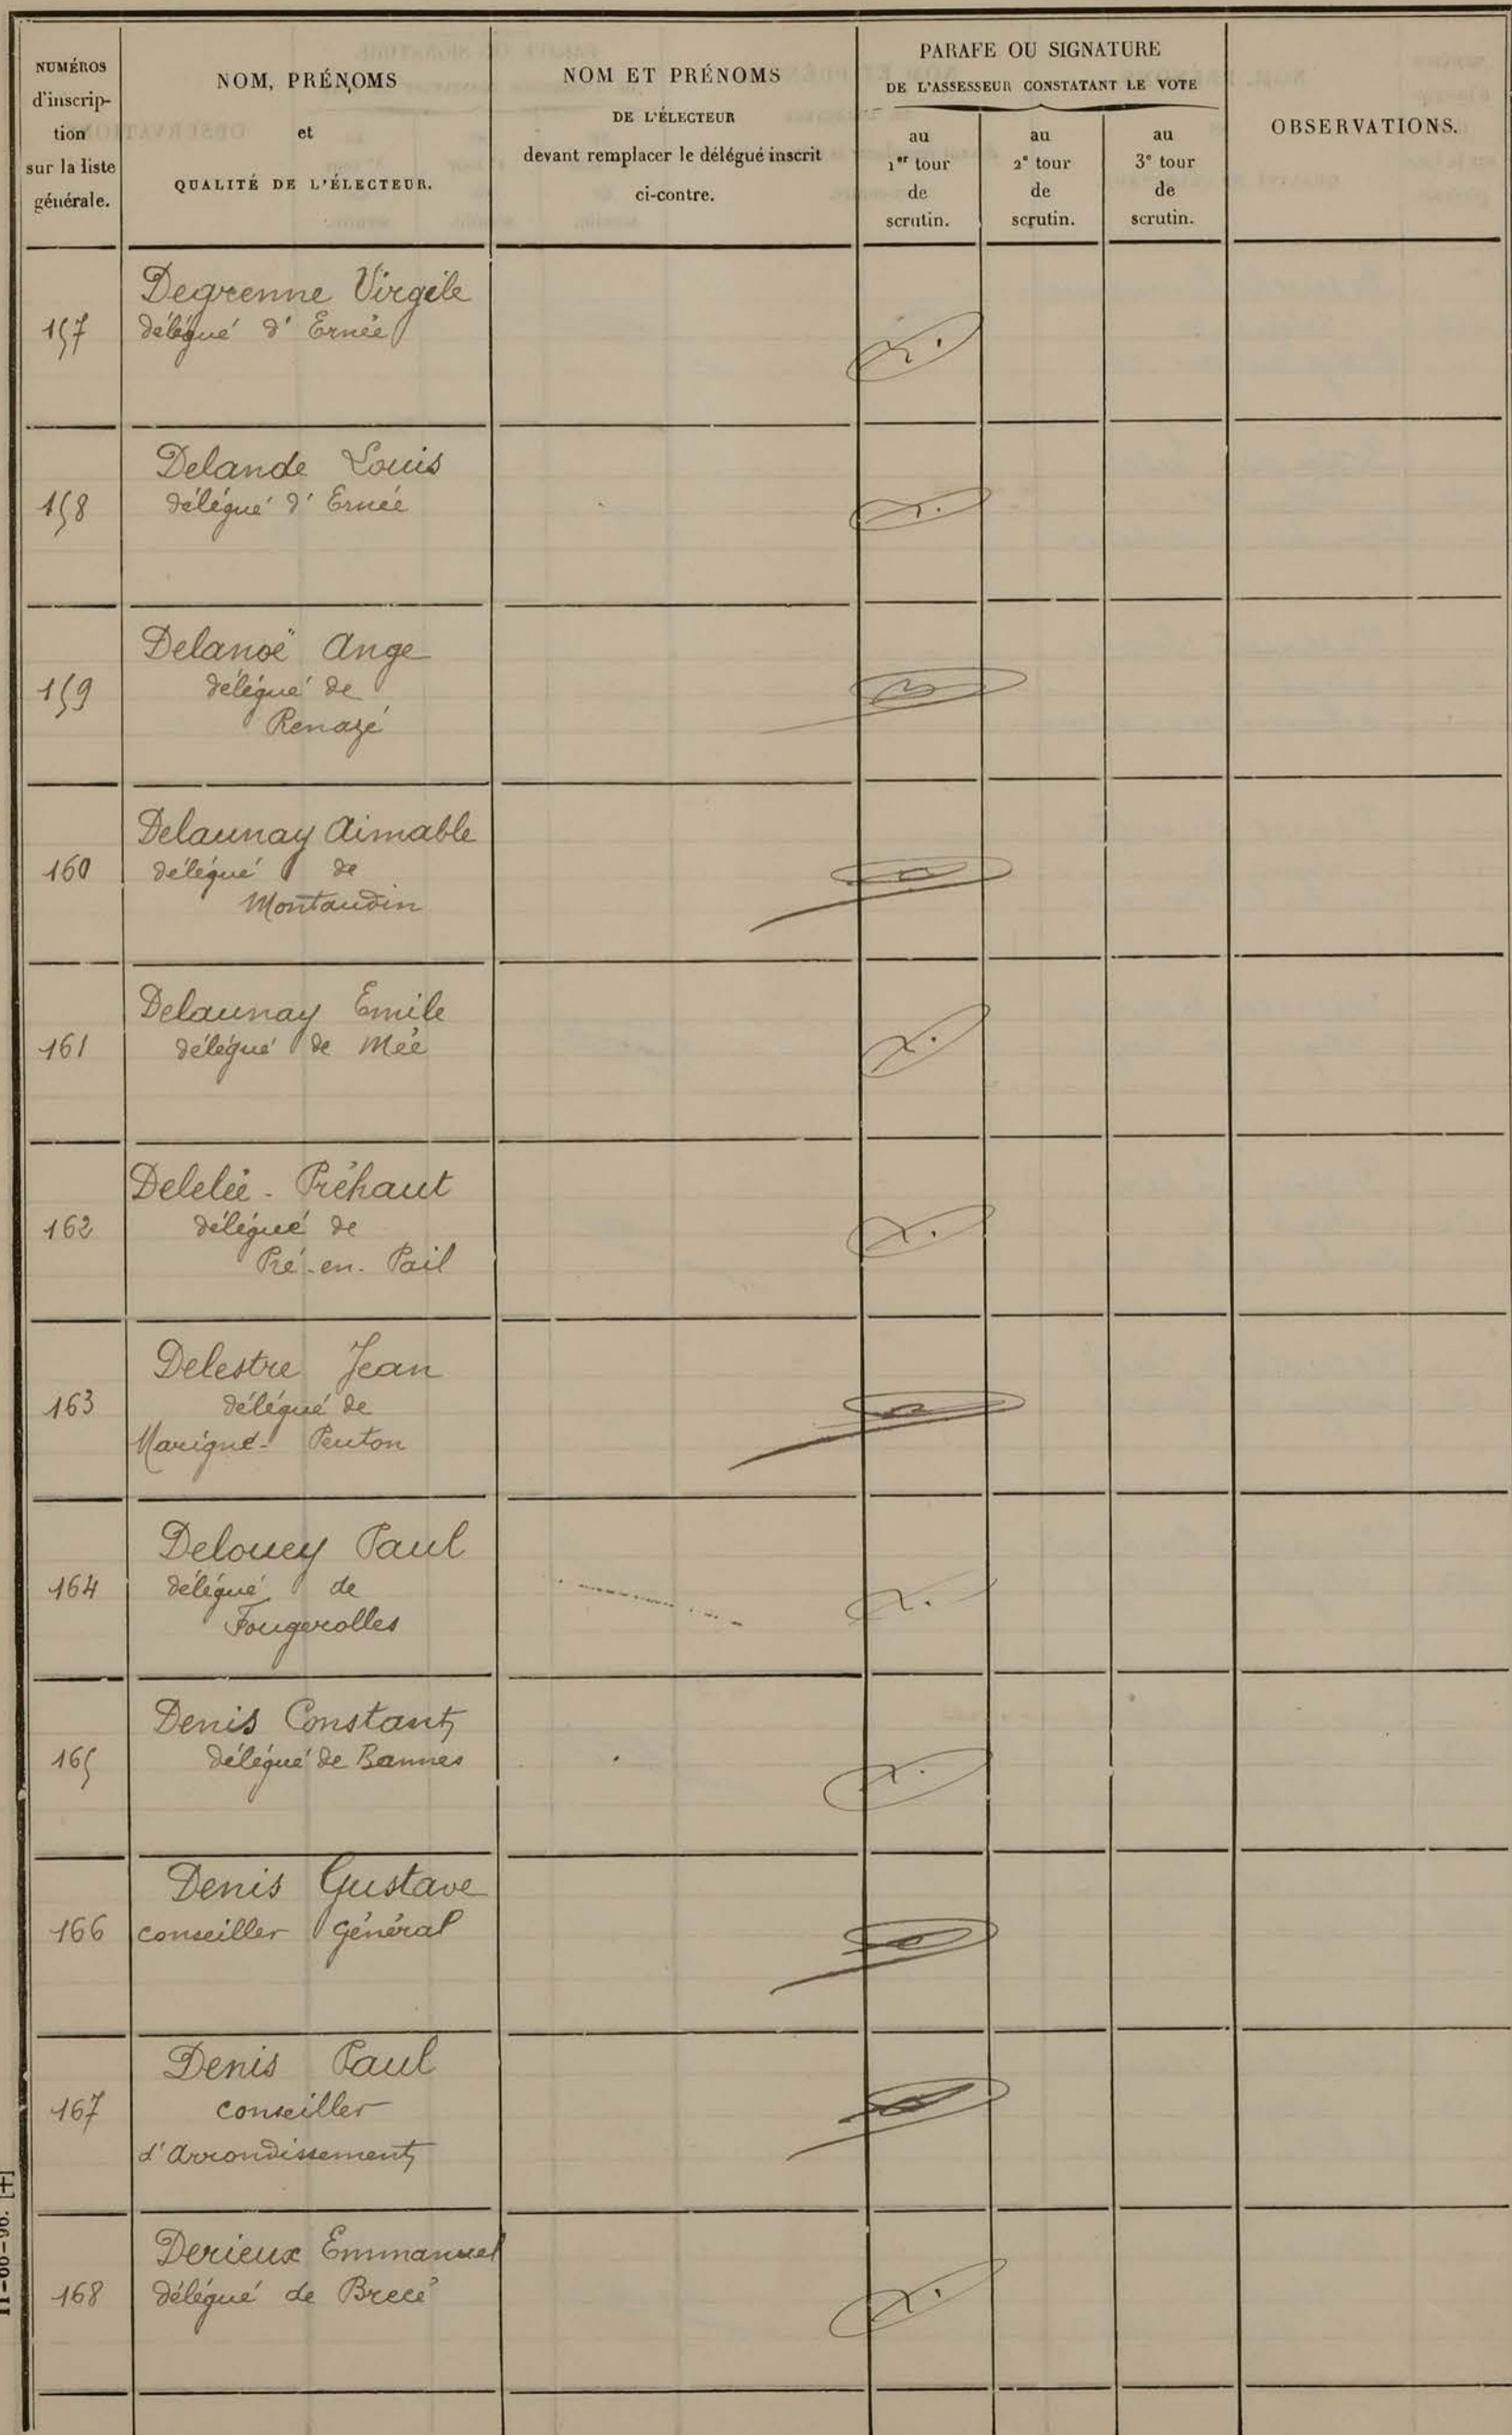 NUMÉROS
d'inscrip-
tion
sur la liste
générale.
NOM, PRÉNOMS
et
QUALITÉ DE L'ÉLECTEUR.
NOM ET PRÉNOMS
DE L'ÉLECTEUR
devant remplacer le délégué inscrit
ci-contre.
PARAFE OU SIGNATURE
DE L'ASSESSEUR CONSTATANT LE VOTE
au
1er tour
de
scrutin.
au
2e tour
de
scrutin.
au
3e tour
de
scrutin.
OBSERVATIONS.
157
Degrenne Virgile
délégué d'Ernée
158
Delande Louis
délégué d'Ernée
159
Delanoë Ange
délégué de
Renazé
160
Delaunay Aimable
délégué de
Montaudin
161
Delaunay Emile
délégué de Mée
162
Delelée-Préhaut
délégué de
Pré-en-Pail
163
Delestre Jean
délégué de
Marigné-Peuton
164
Delouey Paul
délégué de
Fougerolles
165
Denis Constant
délégué de Bannes
166
Denis Gustave
conseiller Général
167
Denis Paul
conseiller
d'Arrondissement
168
Derieux Emmanuel
délégué de Brecé